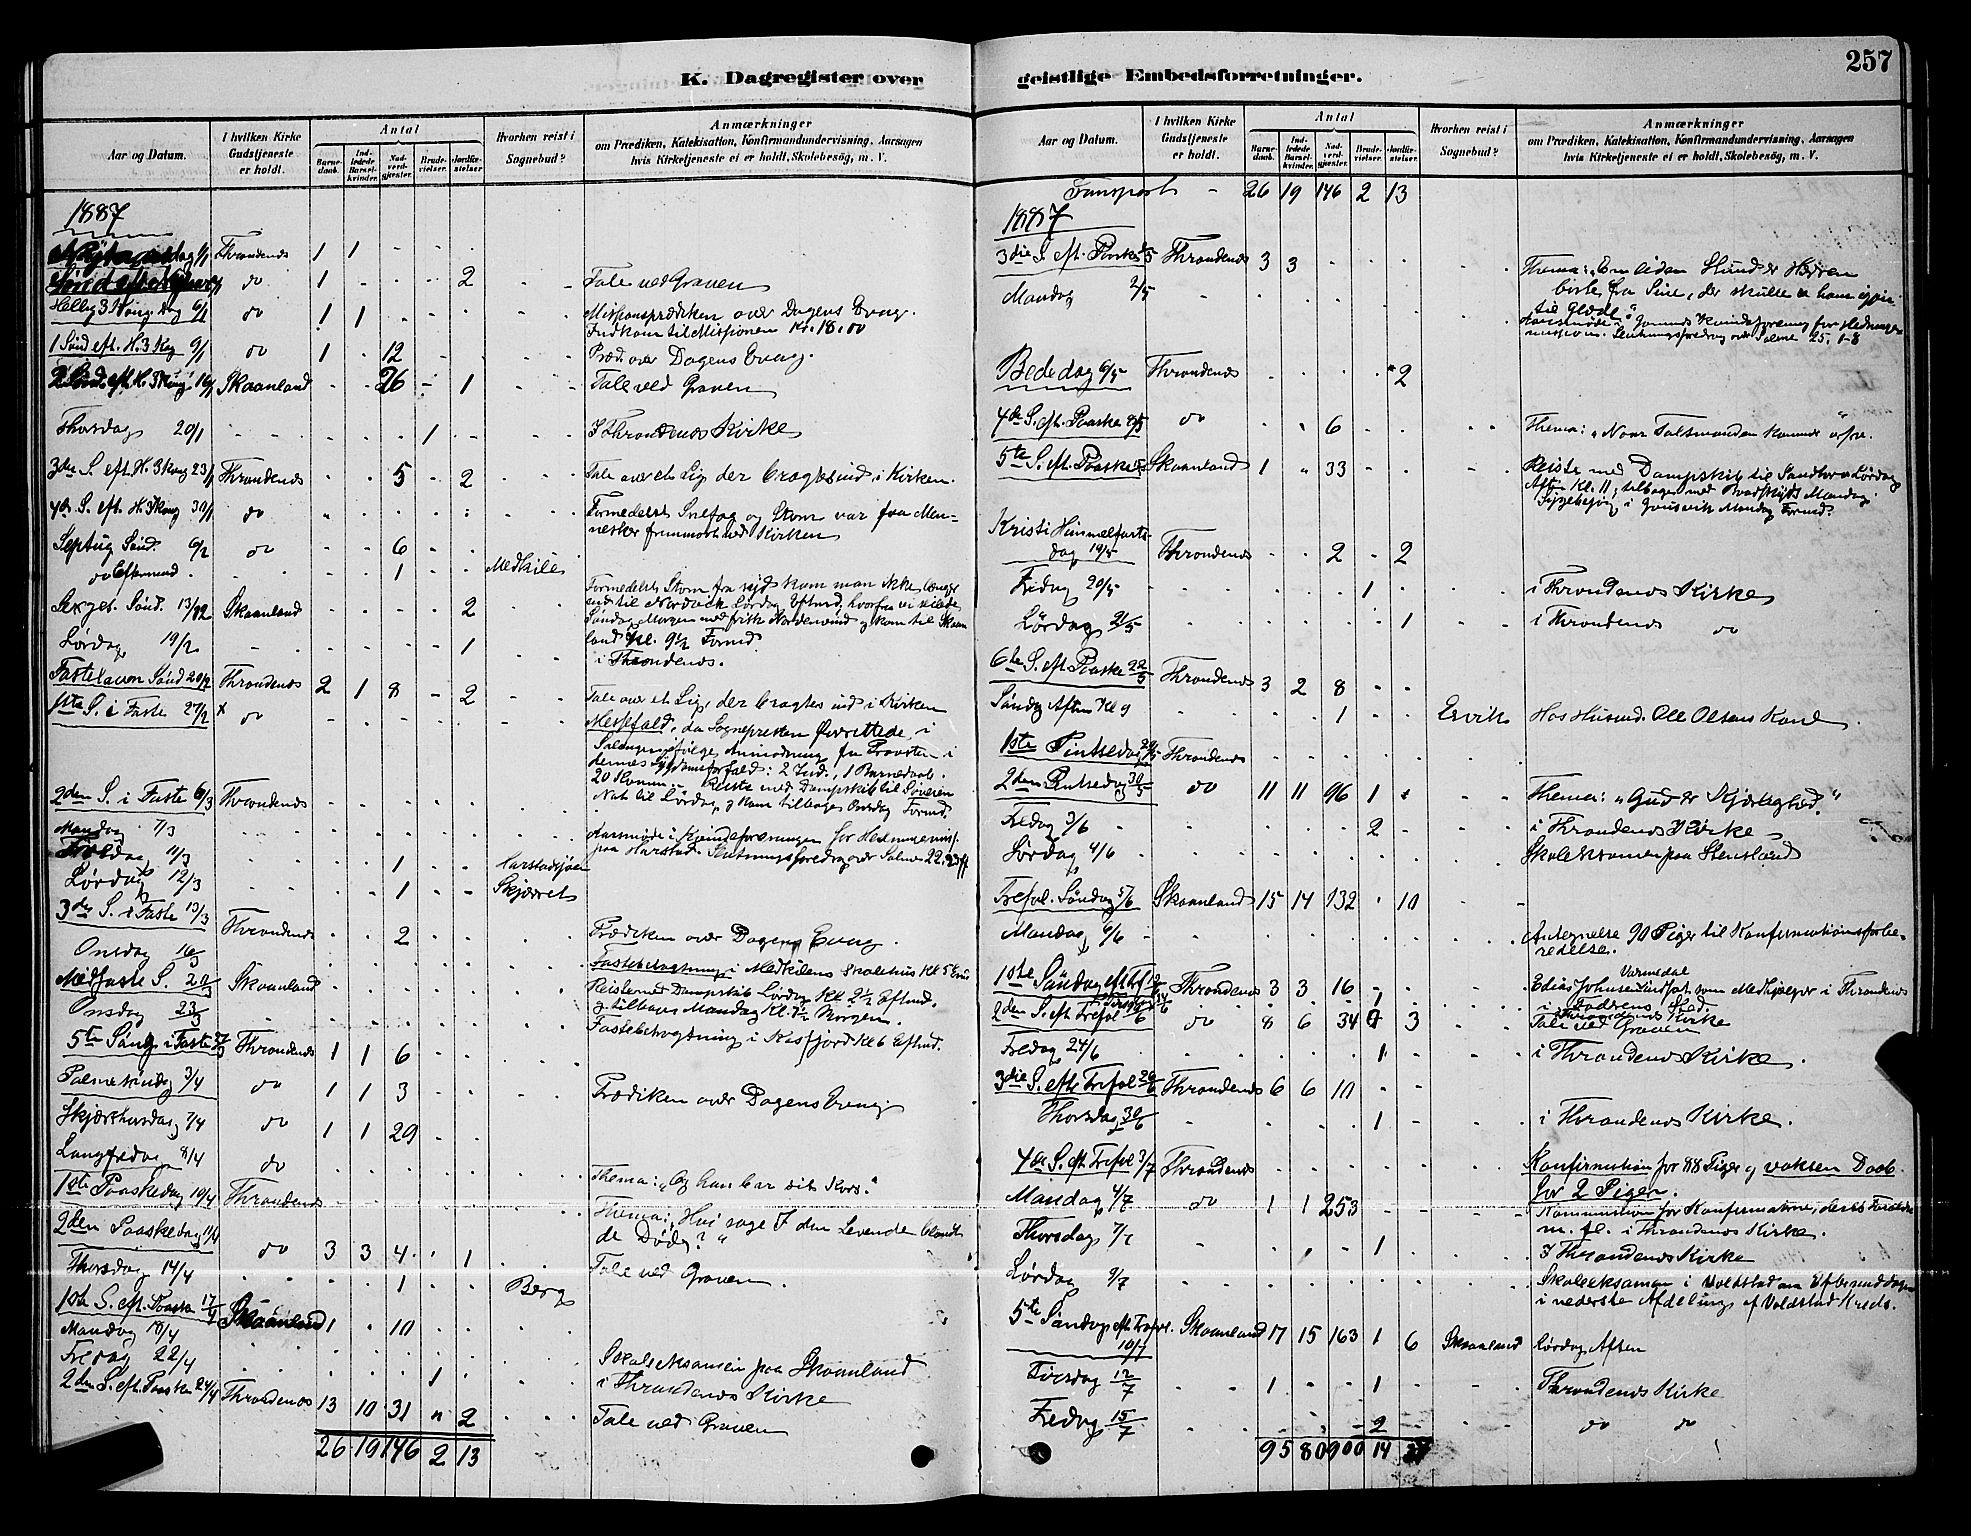 257
K. Dagregister over
geistlige Embedsforretninger.
Aar og Datum.
I hvilken Kirke Gudstjeneste er holdt.
Antal
Barnedaab.
Indledede Barselkvinder.
Nadverdgjester.
Brudevielser.
Jordfæstelser
Hvorhen reist i Sognebud?
Anmærkninger
om Prædiken, Katekisation, Konfirmandundervisning, Aarsagen
hvis Kirketjeneste ei er holdt, Skolebesög, m. V.
1887
6/1 Throndenes 1 1 - - -
do 1 - - - 2 Tale ved Graven
Hellig 3 Kong. Dag 6/1 do 1 1 - - - Missionsprædiken over Dagens Evang.
Indkom til Missionen Kr. 18.00
1 Sönd eft. H. 3 Kg 9/1 do 1 - 12 - - Præd. over Dagens Evang.
2 Sönd. eft. H. 3 Kong 16/1 Skaanland - - 26 - 1 Tale ved Graven
Thorsdag 20/1 - - - - 1 - I Throndenes Kirke
3die S. eft. H. 3 Kong 23/1 Throndenes - - 5 - 2 Tale over et Lig, der bragtes ind i Kirken.
4de S. eft. H. 3 Kong 30/1 do - - - - - Formedelst Snefog og Storm var faa Men-
nesker fremmødt ved Kirken
Septug Sönd. 6/2 do - - 6 - -
do Eftermid. - - 1 - - Medkile
Formedelst Storm fra syd kom man ikke længer
end til Nordvik Lørdag Eftmd, hvorfra vi seilede
Sexges. Sönd. 13/2 Skaanland - - - - 2 Söndag Morgen med frisk Nordenvind og kom til Skaan
land Kl. 9½ Formd
Lørdag 19/2 - - - - 1 i Throndenes.
Fastelavn Sönd 20/2 Throndenes 2 1 8 - 2 Tale over et Lig, der bragtes ind i Kirken
1ste S. i Faste 27/2 x do - - - - - Messefald, da Sognepresten forrettede i
Salangen ifølge Anmodning fra Provsten i
dennes Sygdomsforfald: 2 Ind., 1 Barnedaab.
20 Komm. - Reiste med Dampskib til Løvelien
Nat til Lørdag og kom tilbage Onsdag Formd.
2den S. i Faste 6/3 Throndenes - - - - -
Mandag 7/3 Aarsmøde i Kvindeforeningen for Hedningemiss.
paa Harstad. Slutningsforedrag over Salme 22, 23 ff
Fredag 11/3 - - 1 - - Harstadsjøen
Lørdag 12/3 - - 1 - - Skjærret
3die S. i Faste 13/3 Throndenes - - 2 - - Prædiken over Dagens Evang.
Onsdag 16/3 Fastebetragtning i Medkilens Skolehus Kl 5 Emd
Midfaste S. 20/3 Skaanland Reiste med Dampskib Lørdag Kl. 2½ Eftmd.
og tilbage Mandag Kl. 7½ Morgen.
Onsdag 23/3 Fastebetragtning i Kasfjord Kl 6 Eftmd.
5te Söndg i Faste 27/3 Throndenes 1 1 6 - -
Palmesöndag 3/4 do 1 1 3 - - Prædiken over Dagens Evang.
Skjærthorsdag 7/4 do 1 1 29 - -
Langfredag 8/4 do - - - - - Thema: „Og han bar sit Kors."
1ste Paaskedag 10/4 Throndenes - - - - - Thema: „Hvi søge I den Levende blandt
de Døde?"
2den Paaskedag 11/4 do 3 3 4 - 1 Tale ved Graven.
Thorsdag 14/4 - - 1 - - Berg
1ste S. eft. Paaske 17/4 Skaanland 1 - 10 - -
Mandag 18/4 Skoleeksamen paa Skaanland
Fredag 22/4 - - - 1 - i Throndenes Kirke
2den S. eft. Paaske 24/4 Throndenes 13 10 31 „ 2 Tale ved Graven
26 19 146 2 13
Aar og Datum.
I hvilken Kirke Gudstjeneste er holdt.
Antal
Barnedaab.
Indledede Barselkvinder.
Nadverdgjester.
Brudevielser.
Jordfæstelser.
Hvorhen reist i Sognebud?
Anmærkninger
om Prædiken, Katekisation, Konfirmandundervisning, Aarsagen
hvis Kirketjeneste ei er holdt, Skolebesög, m. V.
Transport - 26 19 146 2 13
1887
3die S. eft. Paaske 1/5 Throndenes 3 3 - - - Thema: „En liden Stund er Herren
borte fra Sine, der skulle se ham igjen
til Glæde."
Mandag 2/5 Aarsmøde i Kvindeforening for Hedninge-
missionen. Slutningsforedrag over Salme 25, 1-8
Bededag 6/5 Throndenes - - - - 2
4de S. eft. Paaske 8/5 do - - 6 - - Thema: „Naar Talsmanden kommer o.s.v."
5te S. eft. Paaske Skaanland 1 „ 33 - - Reiste med Dampskib til Sandtorv Lørdag
Aften Kl. 11, tilbage med Baadskyds Mandag.
Sygebesøg i Mandag Formd.
Kristi Himmelfarts-
dag 19/5 Throndenes - - 2 - 2
Fredag 20/5 - - - 1 - i Throndenes Kirke
Lördag 21/5 - - - - 1 i Throndenes do
6te S. eft Paaske 22/5 Throndenes 3 2 8 - -
Söndag Aften Kl 9 - - 1 - - Ervik Hos Husmd. Ole Olsens Kone.
1ste Pintsedag 29/5 Throndenes
2den Pintsedag 30/5 do 11 11 96 1 - Thema: „Gud er Kjærlighed."
Fredag 3/6 - - - 2 - i Throndenes Kirke
Lørdag 4/6 Skoleeksamen paa Stensland
Trefol. Søndag 5/6 Skaanland 15 14 132 - 10
Mandag 6/6 Antegnelse 90 Piger til Konfirmationsforbe-
redelse.
1ste Söndag eft Tref 12/6 Throndenes 3 3 16 - - Varmedal
som Medhjelper i Throndenes
i Faderens Sted.
Tirsdag 14/6 1 i Throndenes Kirke
2den S. eft Trefol 19/6 do 8 6 34 0 3 Tale ved Graven
Fredag 24/6 - - - 1 - i Throndenes Kirke.
3die S. efte Trefol 26/6 Throndenes 6 6 10 - -
Thorsdag 30/6 - - - 1 - i Throndenes Kirke.
4de S. eft Trefol 3/7 Throndenes - - - - - Konfirmation for 88 Piger og voksen Daab
for 2 Piger.
Mandag 4/7 do 1 1 253 - - Kommunion for Konfirmanterne, deres Forældre
m. fl. i Throndenes Kirke.
Thorsdag 7/7 - - - 1 - I Throndenes Kirke
Lördag 9/7 Skoleeksamen i Voldstad om Eftermiddagen
i nederste Afdeling af Voldstad Kreds.
5te Søndag eft Trefol. 10/7 Skaanland 17 15 163 1 6 Skaanland Lördag Aften
Tirsdag 12/7 - - 1 - 1 Throndenes Kirke
Fredag 15/7 - - - 2 - do do
95 80 900 14 37